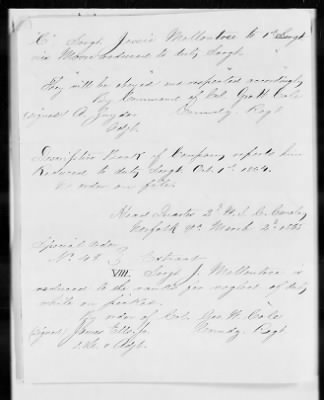 "C" Sergt. James Mellontree to 1st Sergt
vice Moore reduced to duty Sergt.
They will be obeyed and respected accordingly
By Command of Col. Geo. W. Cole
(signed) A. Snyder Commdg. Regt
Adjt.
Descriptive Book of Company reports him
Reduced to duty Sergt. Oct. 1st 1864.
no order on file.
Head Quarters 2d U.S.C. Cavalry
Norfolk Va. March 2d 1865
Special Order
No. 48 Extract
VIII. Sergt J. Mellontree is
reduced to the ranks for neglect of duty
while on picket.
By order of Col. Geo. W. Cole
(signed) James Commdg. Regt
Adjt.